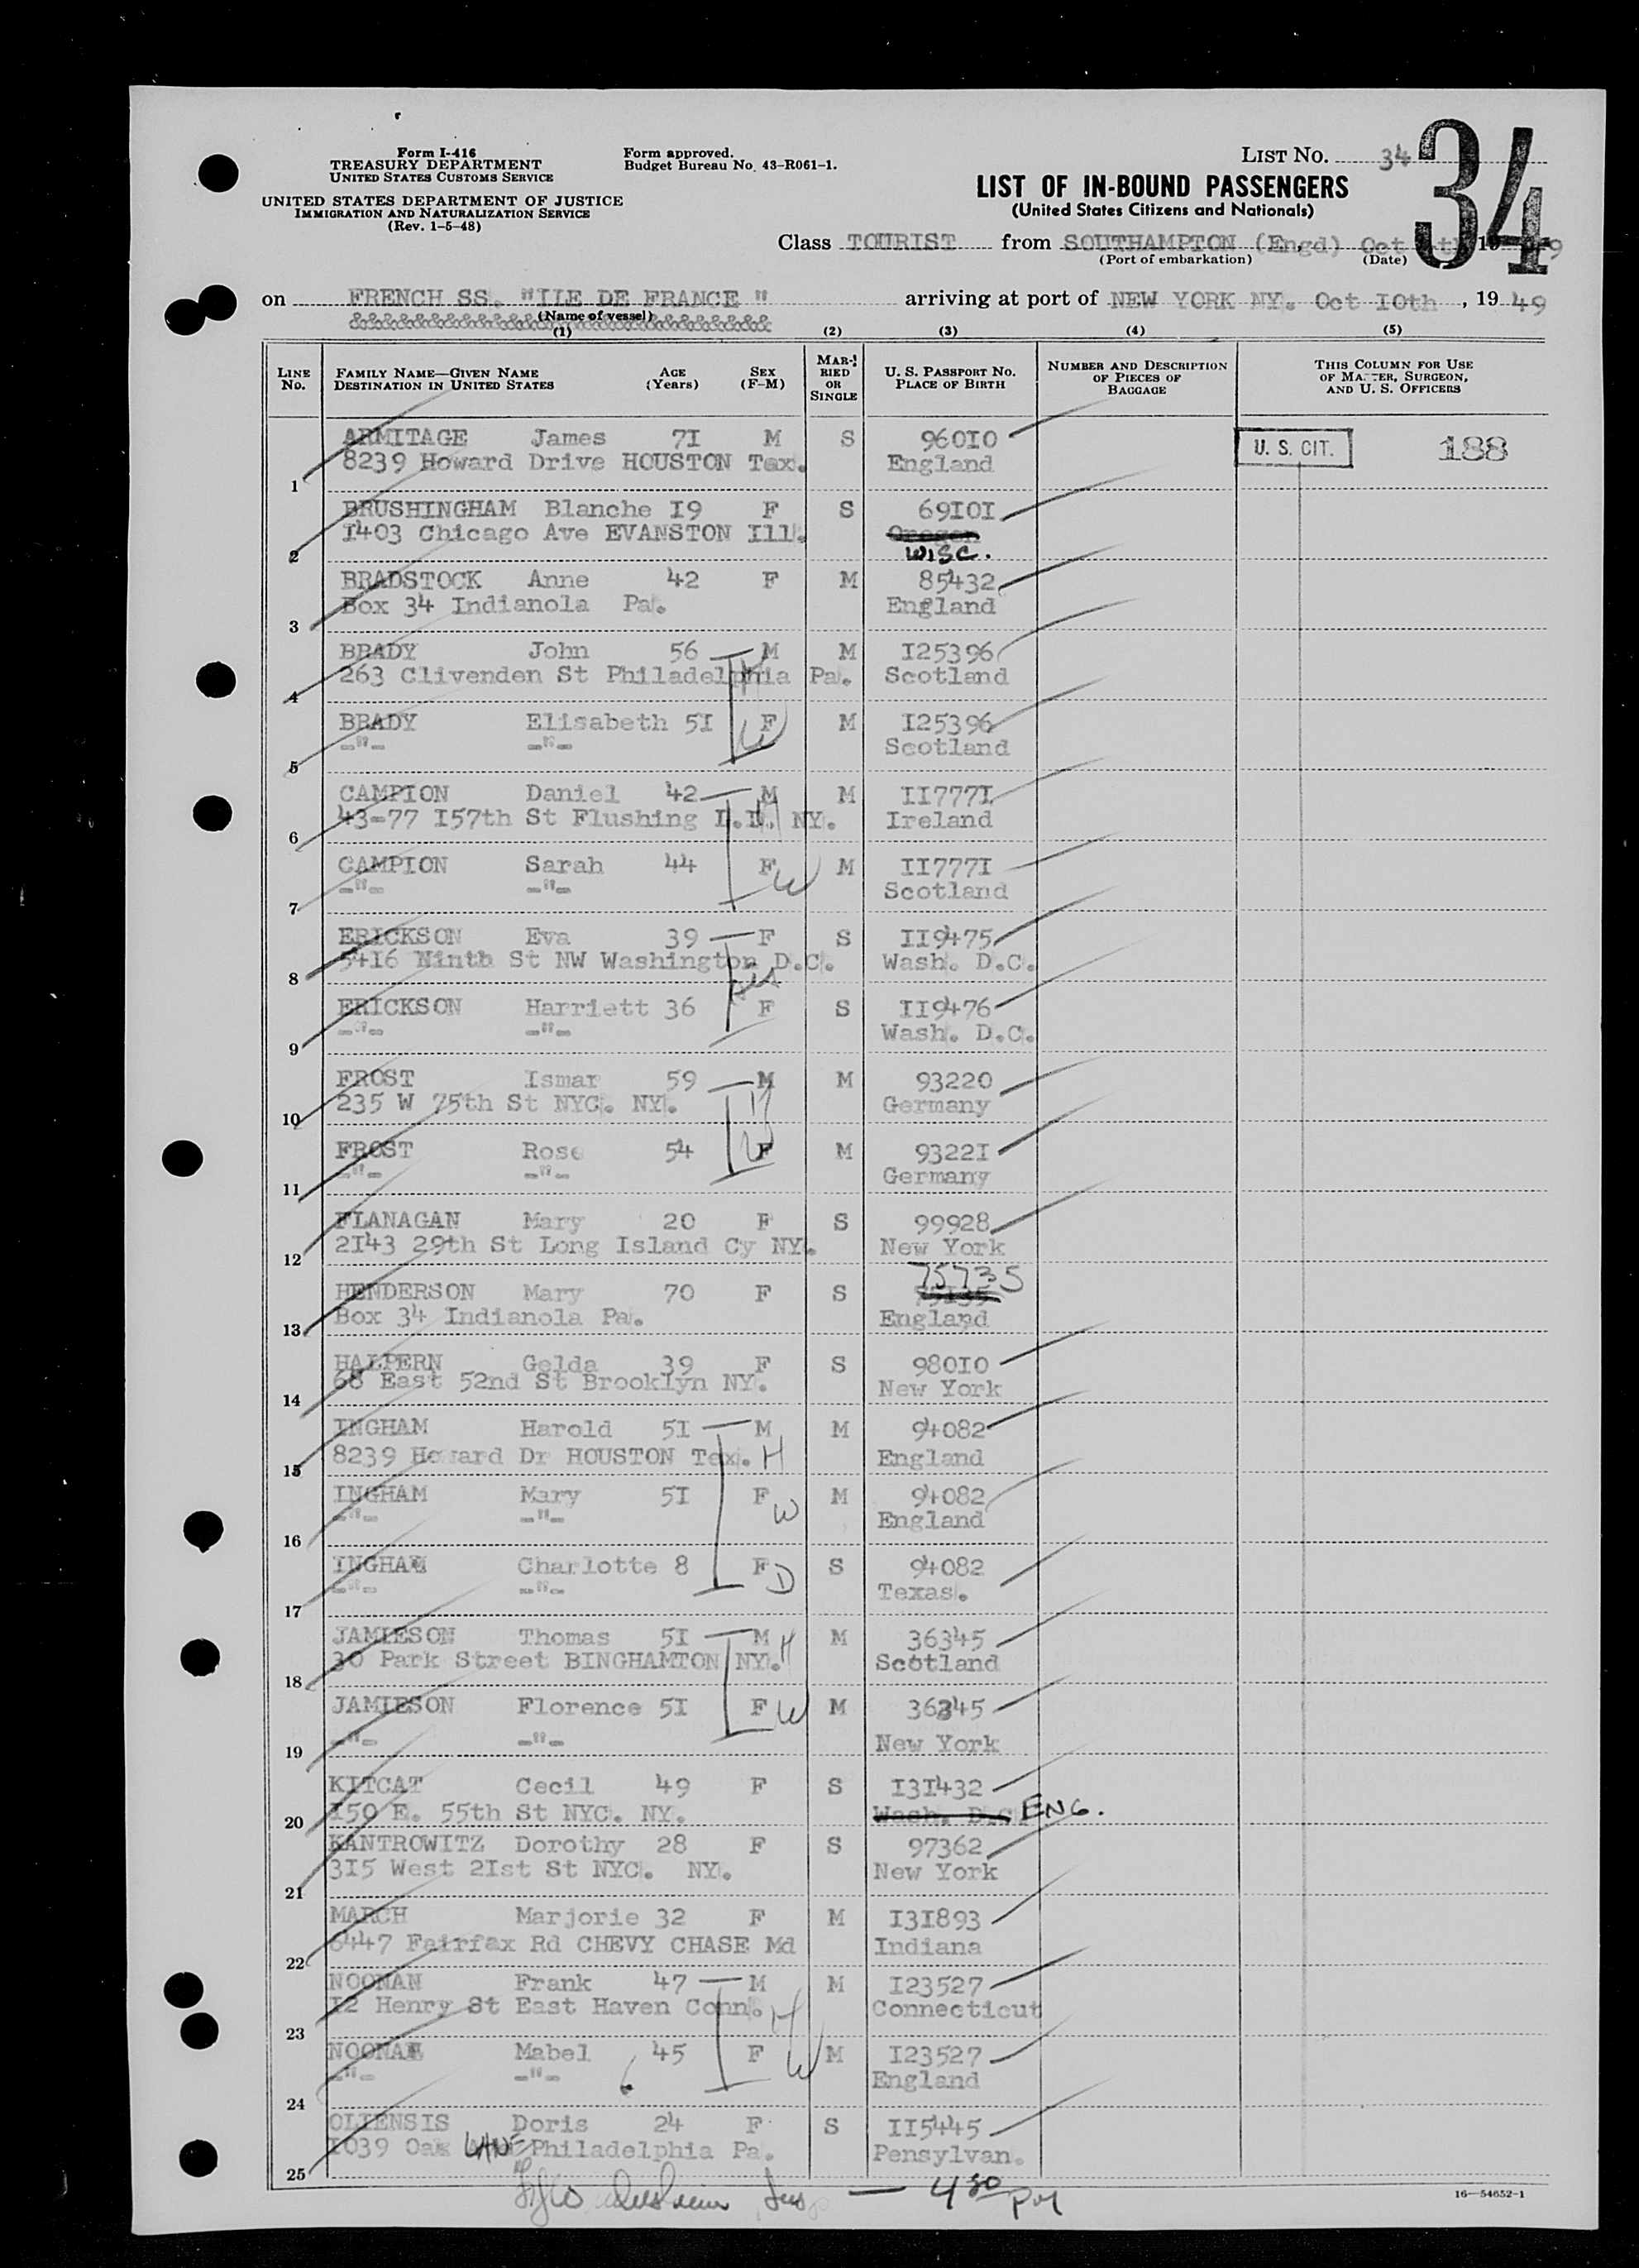 Form I-416
TREASURY DEPARTMENT
UNITED STATES CUSTOMS SERVICE
UNITED STATES DEPARTMENT OF JUSTICE
IMMIGRATION AND NATURALIZATION SERVICE
(Rev. 1-5-48)
Form approved.
Budget Bureau No. 43-R061-1.
LIST No. 34
34
LIST OF IN-BOUND PASSENGERS
(United States Citizens and Nationals)
Class TOURIST from SOUTHAMPTON (Engd) Oct
(Port of embarkation) (Date)
on FRENCH SS. "ILE DE FRANCE " arriving at port of NEW YORK NY. Oct IOth , 19 49
(Name of vessel)
(1) (2) (3) (4) (5)
LINE No.
FAMILY NAME—GIVEN NAME DESTINATION IN UNITED STATES
AGE (Years)
SEX (F-M)
MARRIED OR SINGLE
U. S. PASSPORT NO. PLACE OF BIRTH
NUMBER AND DESCRIPTION OF PIECES OF BAGGAGE
THIS COLUMN FOR USE OF MASTER, SURGEON, AND U. S. OFFICERS
ARMITAGE James 7I M S 960I0 U. S. CIT. 188
1 8239 Howard Drive HOUSTON Tex. England
BRUSHINGHAM Blanche I9 F S 69I0I
2 I403 Chicago Ave EVANSTON Ill. Oregon
WISC.
BRADSTOCK Anne 42 F M 85432
3 Box 34 Indianola Pa. England
BRADY John 56 M M I25396
4 263 Clivenden St Philadelphia Pa. Scotland
BRADY Elisabeth 5I F W M I25396
5 -"- -"- Scotland
CAMPION Daniel 42 M H M II777I
6 43-77 I57th St Flushing L.I. NY. Ireland
CAMPION Sarah 44 F W M II777I
7 -"- -"- Scotland
ERICKSON Eva 39 F S II9475
8 5416 Ninth St NW Washington D.C. Wash. D.C.
ERICKSON Harriett 36 F S II9476
9 -"- -"- Wash. D.C.
FROST Ismar 59 M H M 93220
10 235 W 75th St NYC. NY. Germany
FROST Rose 54 F W M 9322I
11 -"- -"- Germany
FLANAGAN Mary 20 F S 99928
12 2I43 29th St Long Island Cy NY. New York
75735
HENDERSON Mary 70 F S
13 Box 34 Indianola Pa. England
HALPERN Gelda 39 F S 980I0
14 68 East 52nd St Brooklyn NY. New York
INGHAM Harold 5I M M 94082
15 8239 Howard Dr HOUSTON Tex. H England
INGHAM Mary 5I F W M 94082
16 -"- -"- England
INGHAM Charlotte 8 F D S 94082
17 -"- -"- Texas.
JAMIESON Thomas 5I M H M 36345
18 30 Park Street BINGHAMTON NY. Scotland
JAMIESON Florence 5I F W M 36345
19 -"- -"- New York
KITCAT Cecil 49 F S I3I432
20 I50 E. 55th St NYC. NY. Wash. D.C ENG.
KANTROWITZ Dorothy 28 F S 97362
21 3I5 West 2Ist St NYC. NY. New York
MARCH Marjorie 32 F M I3I893
22 6447 Fairfax Rd CHEVY CHASE Md Indiana
NOONAN Frank 47 M M I23527
23 I2 Henry St East Haven Conn. H Connecticut
NOONAN Mabel 45 F W M I23527
24 -"- -"- England
OLIENSIS Doris 24 F S II5445
25 I039 Oak LANE Philadelphia Pa. Pensylvan.
— 4 30 PM
16—54652-1